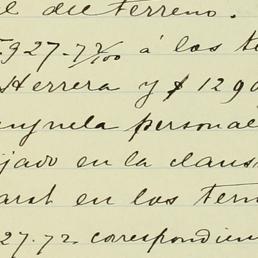 del terreno.
927.72/100 á los te
Herrera y $ 1290
personal
jado en la claus
en los term
27.72 correspondien